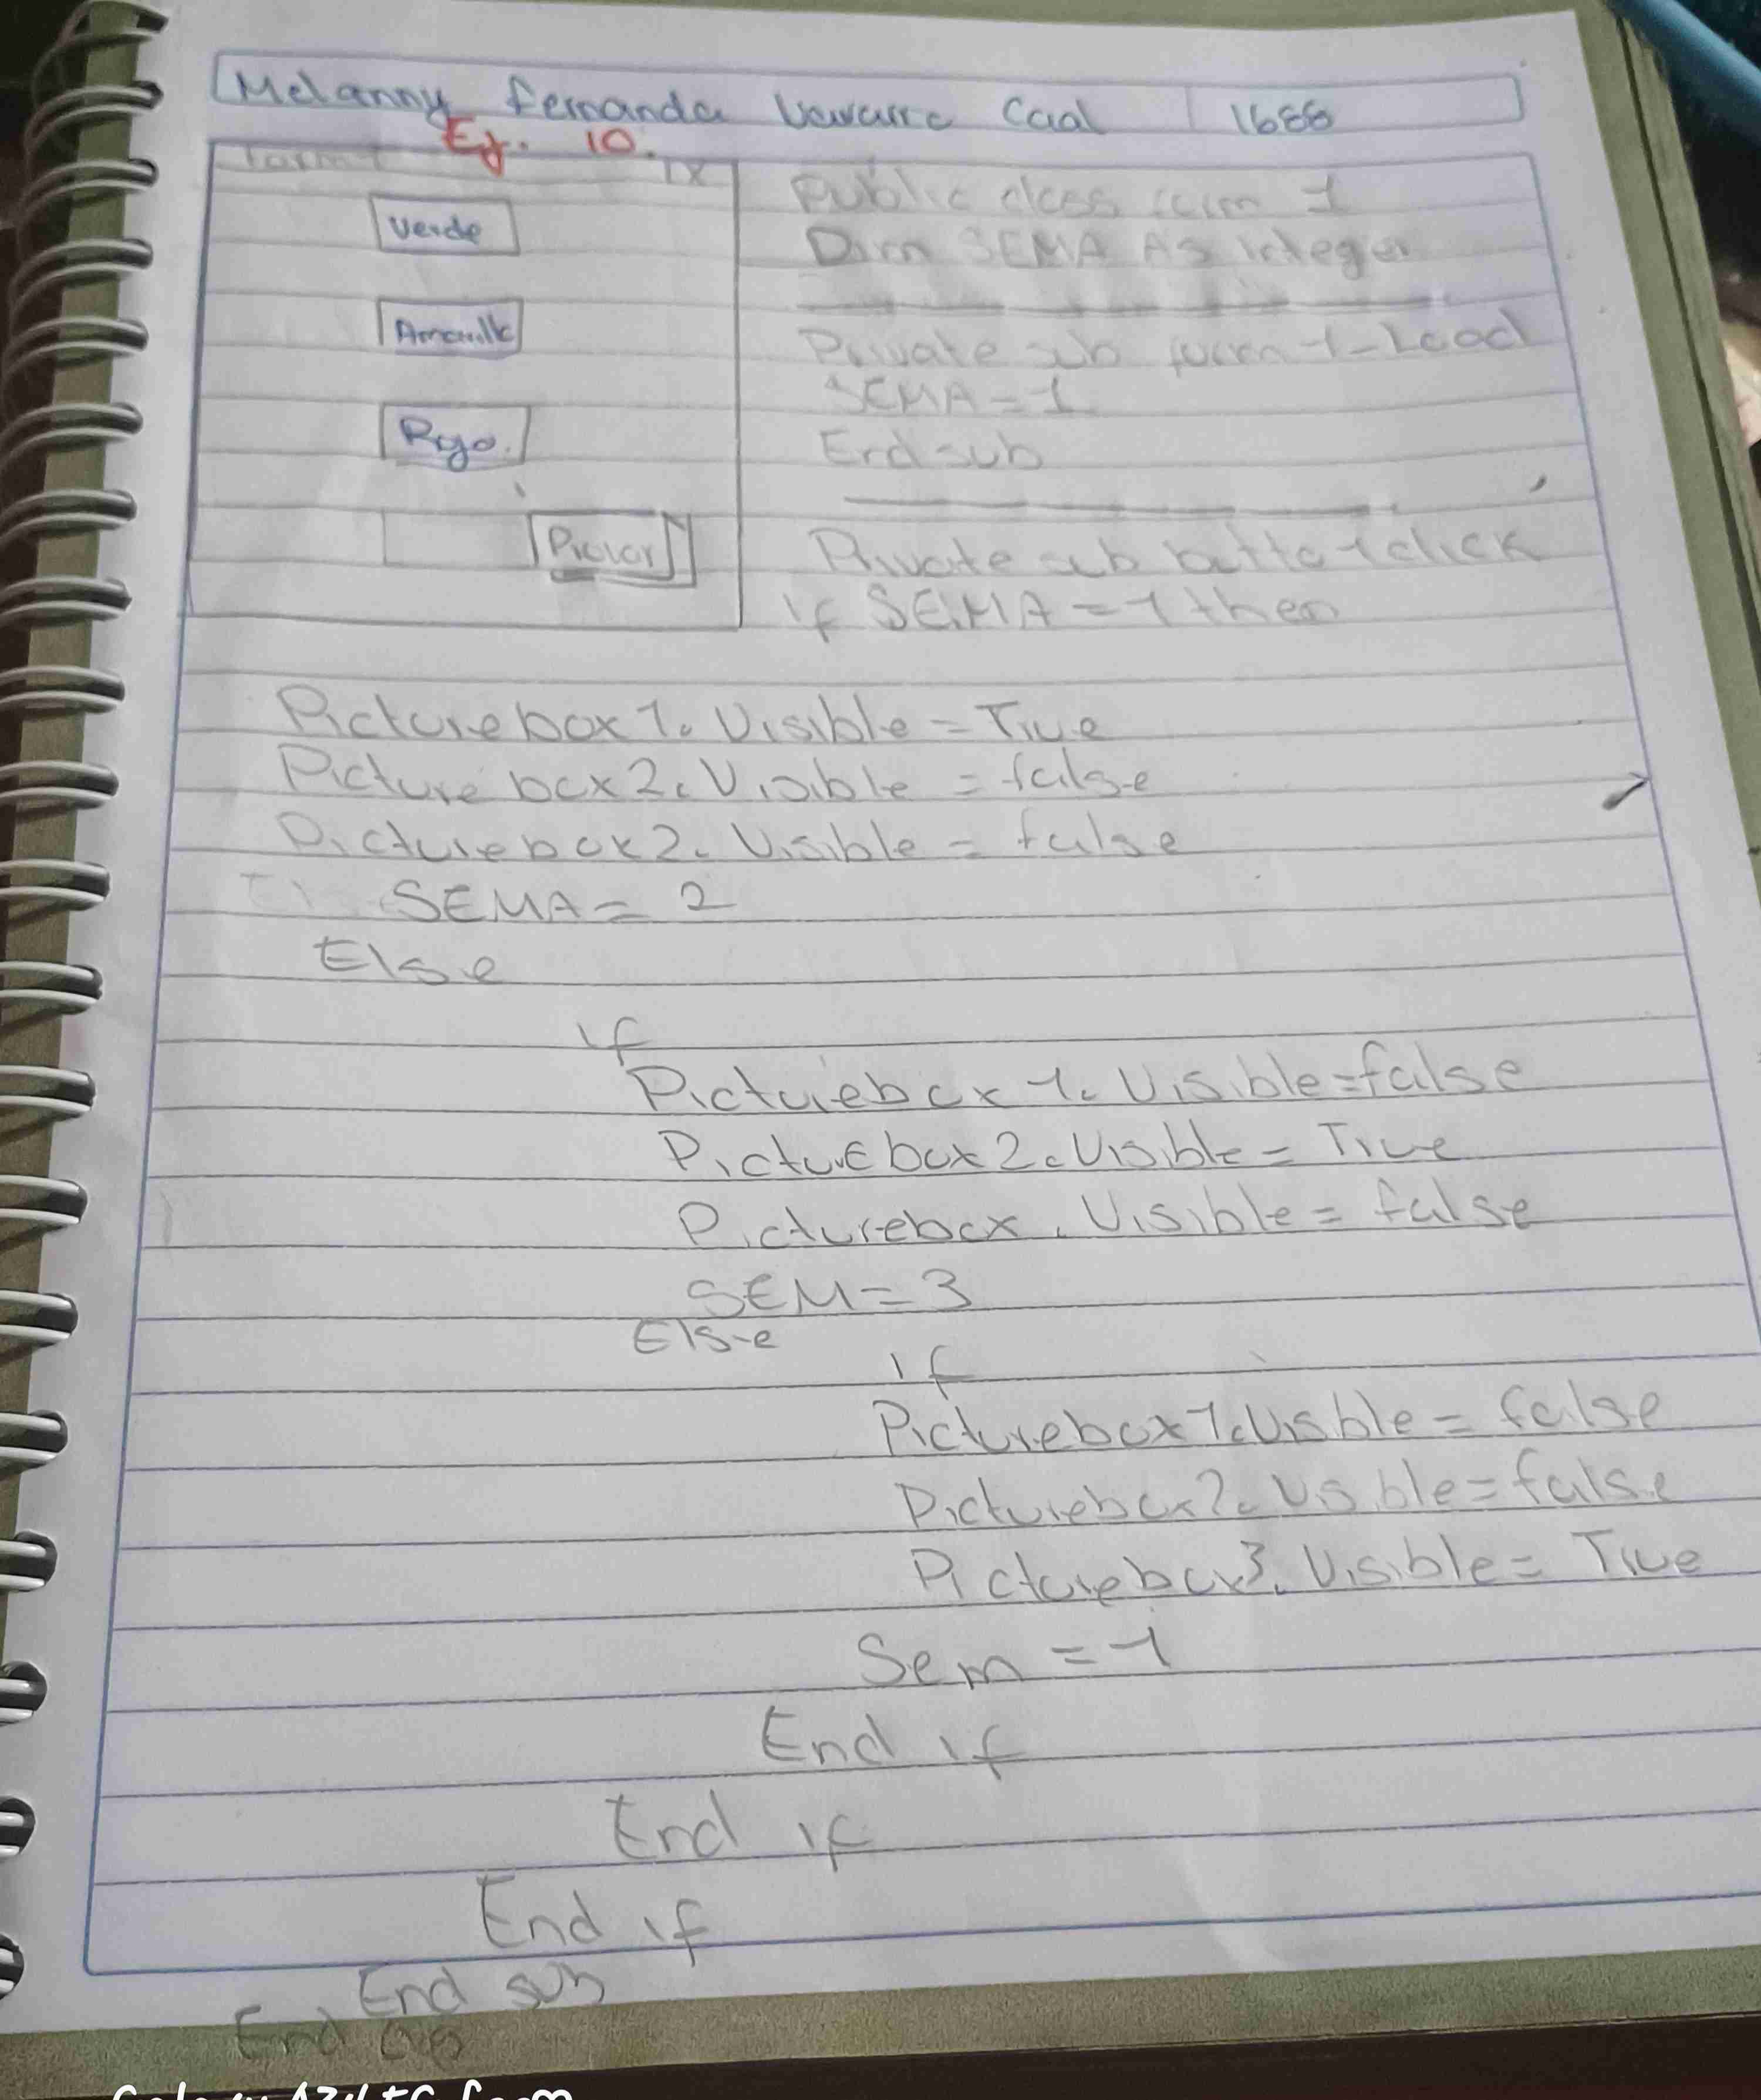 Melanny Fernanda Caal 1688
Ej. 10.
Form 1 X
Verde
Amarillo
Rojo.
Public class form 1
Dim SEMA As integer
Private sub form 1-Load
SEMA = 1
End sub
Private sub butto 1 click
If SEMA = 1 then
Picturebox 1. Visible = True
Picture box 2. Visible = false
Picturebox 2. Visible = false
SEMA = 2
Else
if
Picturebox 1. Visible = false
Picturebox 2. Visible = True
Picturebox . Visible = false
SEM = 3
Else
if
Picturebox 1. Visble = false
Picturebox 2. Visible = false
Picturebox 3. Visible = True
Sem = 1
End if
End if
End if
End sub
End